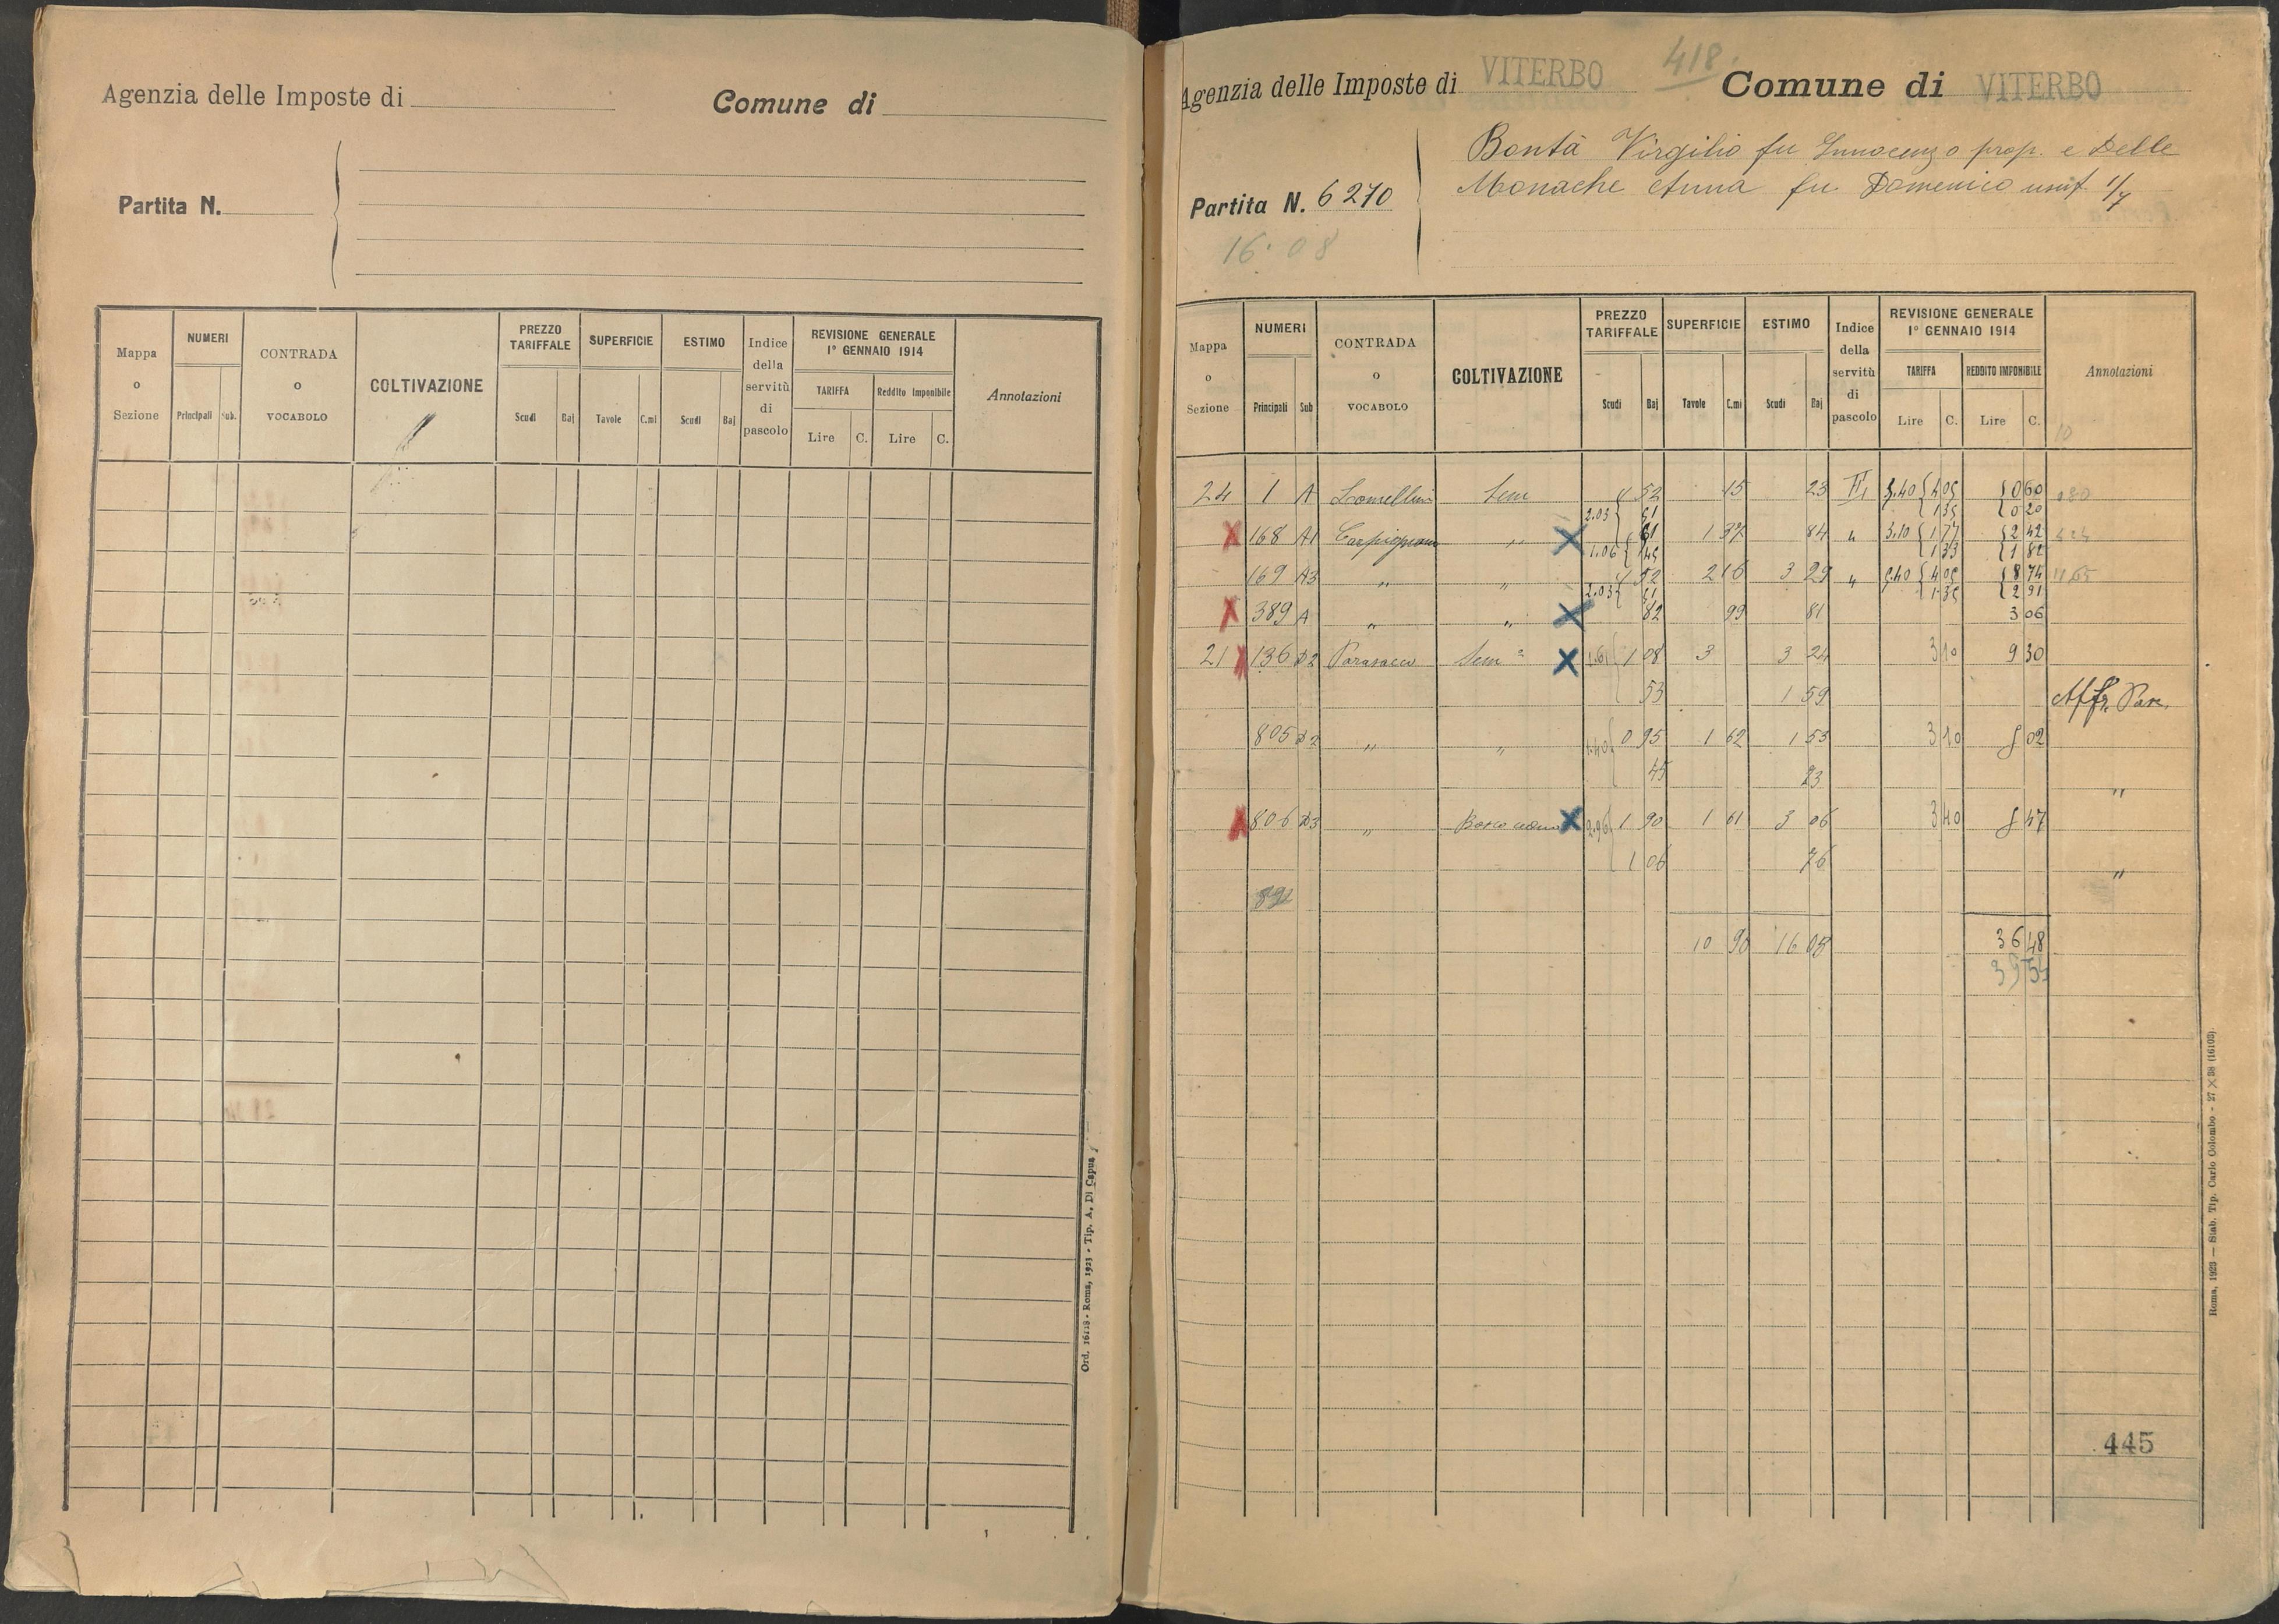 Agenzia delle Imposte di
Comune di
Partita N.
Mappa o Sezione
NUMERI
Principali Sub.
CONTRADA o VOCABOLO
COLTIVAZIONE
PREZZO TARIFFALE
Scudi Baj
SUPERFICIE
Tavole C.mi
ESTIMO
Scudi Baj
Indice della servitù di pascolo
REVISIONE GENERALE
1° GENNAIO 1914
TARIFFA
Lire C.
Reddito Imponibile
Lire C.
Annotazioni
Ord. 16118 - Roma, 1923 - Tip. A. Di Capua
Agenzia delle Imposte di VITERBO
418.
Comune di VITERBO
Partita N. 6270
16.08
Bontà Virgilio fu Innocenzo prop. e Delle
Monache Anna fu Domenico usuf. 1/7
Mappa o Sezione
NUMERI
Principali Sub
CONTRADA o VOCABOLO
COLTIVAZIONE
PREZZO TARIFFALE
Scudi Baj
SUPERFICIE
Tavole C.mi
ESTIMO
Scudi Baj
Indice della servitù di pascolo
REVISIONE GENERALE
1° GENNAIO 1914
TARIFFA
Lire C.
REDDITO IMPONIBILE
Lire C.
Annotazioni
10
24 1 A Lomellini Sem 4 52 15 23 II 5.40 { 4 05 { 0 60 0 80
2.03 { 51 1 35 0 20
X 168 A1 Carpignano " X 61 1 37 84 " 3.10 { 1 77 { 2 42
1.06 { 45 1 33 1 82
169 A3 " " 4 52 2 16 3 29 " 5.40 { 4 05 { 8 74 11 65
2.03 { 51 1 35 2 91
X 389 A " " X 82 99 81 3 06
21 X 136 D2 Parasacco Sem X 1.61 { 1 08 3 3 24 3 10 9 30
53 1 59 Affr. Pas.
805 D2 " " 1.40 { 0 95 1 62 1 53 3 10 5 02
45 73 "
X 806 D3 " X 2.96 { 1 90 1 61 3 06 3 40 5 47
1 06 76 "
10 90 16 08 36 48
39 54
445
Roma, 1923 — Stab. Tip. Carlo Colombo - 27 × 38 (16103).